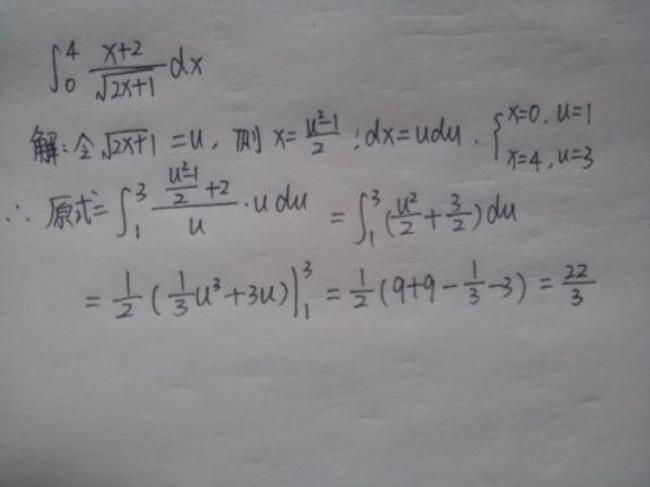 ∫₀⁴ (x+2)/√(2x+1) dx
解:令√(2x+1) = u, 则 x = (u²-1)/2 ; dx = udu. { x=0, u=1
x=4, u=3
∴ 原式= ∫₁³ ((u²-1)/2 + 2)/u · u du = ∫₁³ (u²/2 + 3/2) du
= 1/2 (1/3 u³ + 3u) |₁³ = 1/2 (9+9 - 1/3 - 3) = 22/3